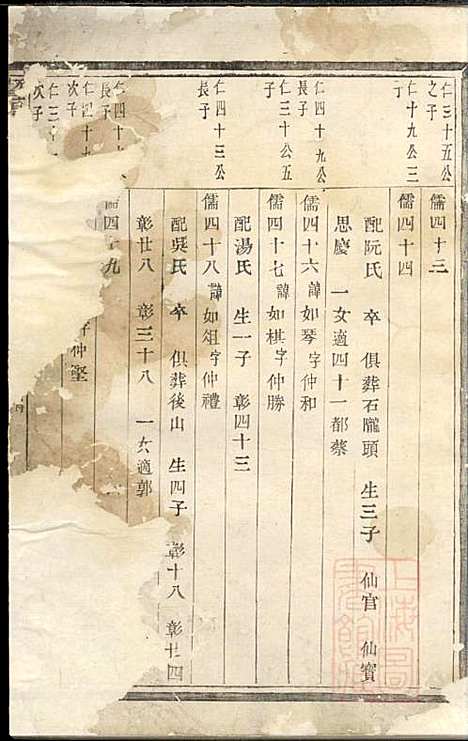 仁三十五公之子
儒四十三
仁十九公三子
儒四十四
配阮氏 卒 俱葬石隴頭 生三子 仙官 仙寶
思慶 一女適四十一都蔡
仁四十九公長子
儒四十六 諱如琴字仲和
仁三十公五子
儒四十七 諱如棋字仲勝
配湯氏 生一子 彰四十三
仁四十三公長子
儒四十八 諱如俎字仲禮
配吳氏 卒 俱葬後山 生四子 彰十八 彰廿四
彰廿八 彰三十八 一女適郭
仁四十
長子
四十九
仁四十九
次子
仲堅
仁三
次子
上海圖